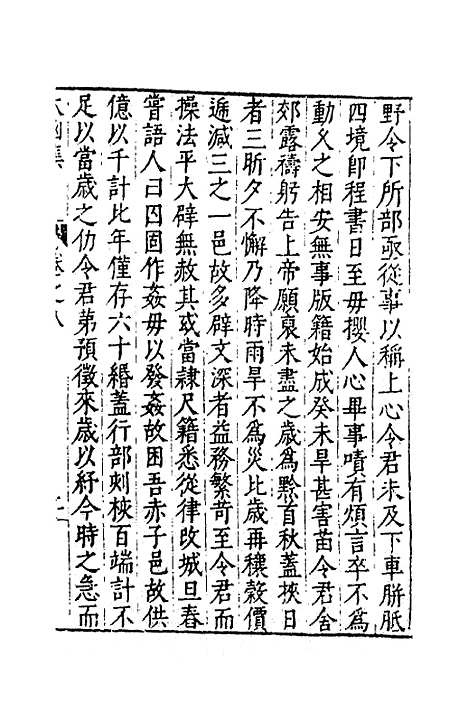 野令下所部亟從事以稱上心令君未及下車胼胝
四境卽程書日至毋攖人心畢事嘖有煩言卒不為
動久之相安無事版籍始成癸未旱甚害苗令君舍
郊露禱躬告上帝願裒未盡之歲為黔首秋蓋挾日
者三昕夕不懈乃降時雨旱不為災比歲再穰穀價
遞減三之一邑故多辟文深者益務繁苛至令君而
操法平大辟無赦其或當隷尺籍悉從律改城旦舂
嘗語人曰囚固作姦毋以發姦故困吾赤子邑故供
億以千計比年僅存六十緡蓋行部刻挾百端計不
足以當歲之仂令君第預徵來歲以紓今時之急而
太函集
卷之八